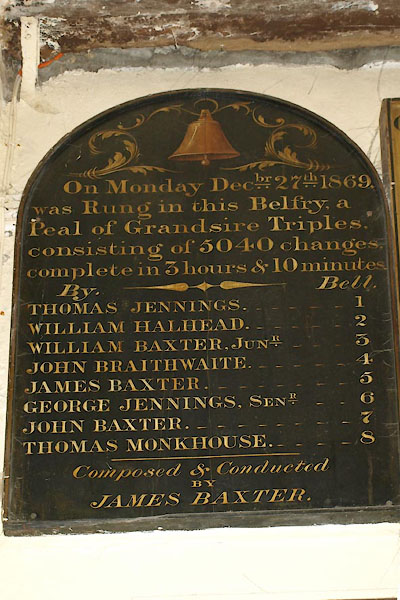 On Monday Decbr 27th 1869.
was Rung in this Belfry, a
Peal of Grandsire Triples.
consisting of 5040 changes,
complete in 3 hours & 10 minutes
By. Bell.
THOMAS JENNINGS. 1
WILLIAM HALHEAD. 2
WILLIAM BAXTER, JUNR 3
JOHN BRAITHWAITE. 4
JAMES BAXTER. 5
GEORGE JENNINGS, SENR 6
JOHN BAXTER. 7
THOMAS MONKHOUSE. 8
Composed & Conducted
BY
JAMES BAXTER.